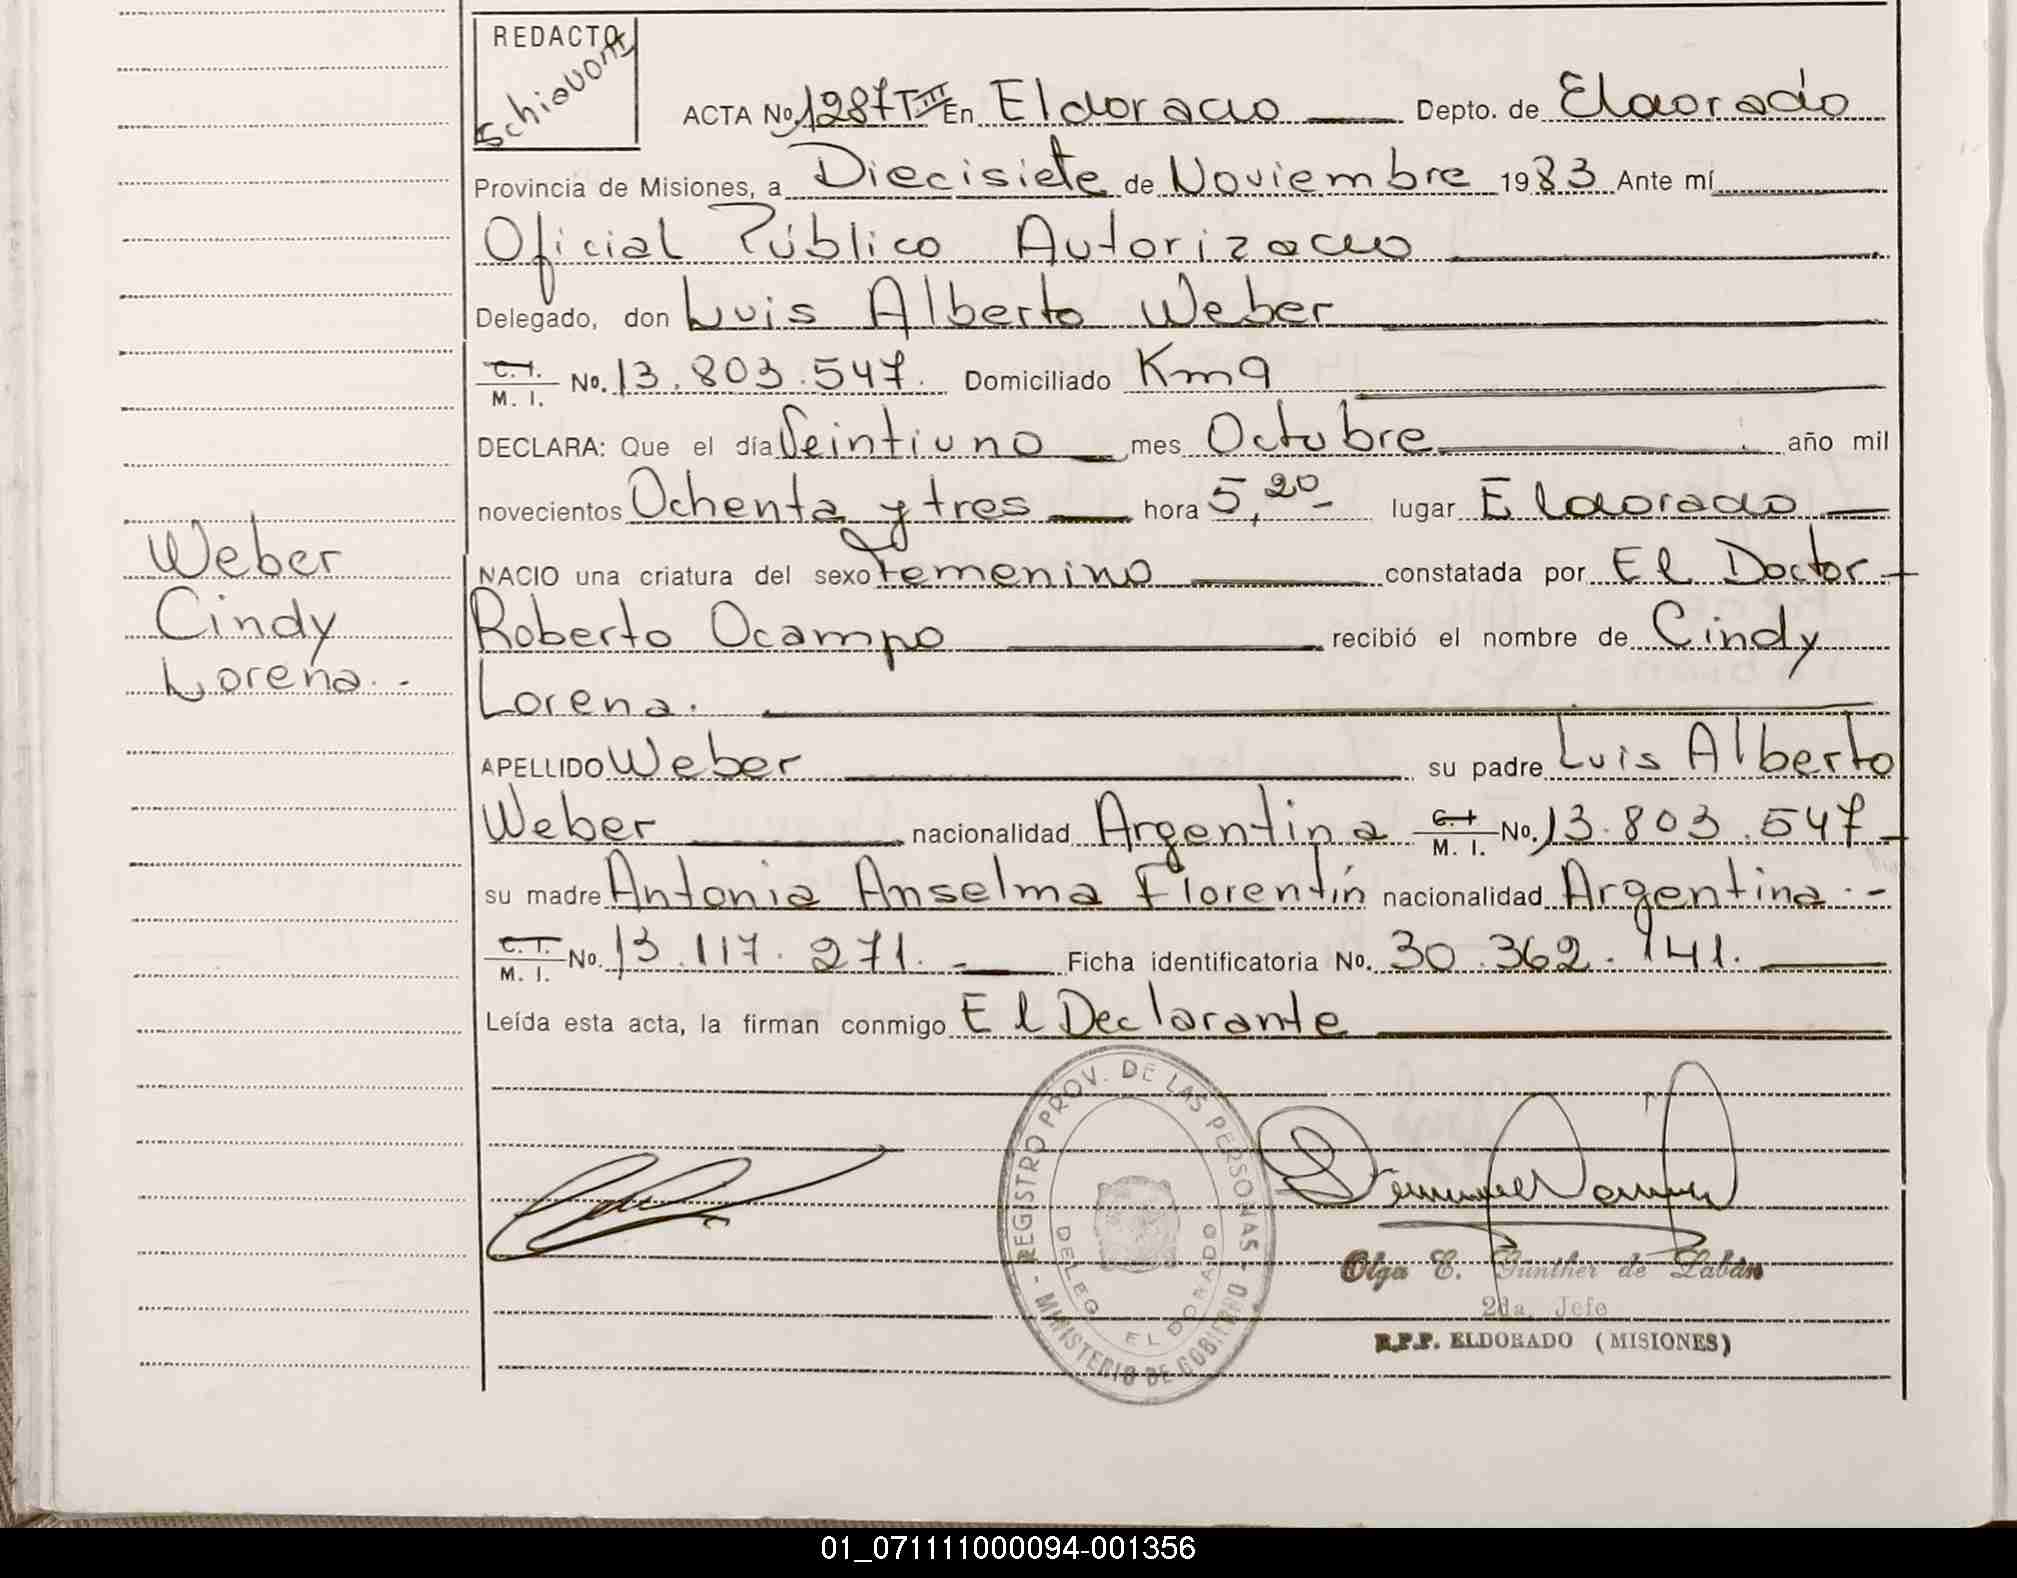 REDACTO
Schiavoni
ACTA No. 1287 T.III En Eldorado Depto. de Eldorado
Provincia de Misiones, a Diecisiete de Noviembre 1983 Ante mí
Oficial Público Autorizado
Delegado, don Luis Alberto Weber
C. I. M. I. No. 13.803.547. Domiciliado Km 9
DECLARA: Que el día Veintiuno mes Octubre año mil
novecientos Ochenta y tres hora 5,20- lugar Eldorado
NACIO una criatura del sexo Femenino constatada por El Doctor
Roberto Ocampo recibió el nombre de Cindy
Lorena.
APELLIDO Weber su padre Luis Alberto
Weber nacionalidad Argentina C. I. M. I. No. 13.803.547-
su madre Antonia Anselma Florentín nacionalidad Argentina.-
C. I. M. I. No. 13.117.271.- Ficha identificatoria No. 30.362.141.
Leída esta acta, la firman conmigo El Declarante
Weber
Cindy
Lorena.-
REGISTRO PROV. DE LAS PERSONAS - MINISTERIO DE GOBIERNO -
DELEG. ELDORADO
Olga E. Günther de Labán
2da. Jefe
R.P.P. ELDORADO (MISIONES)
01_071111000094-001356